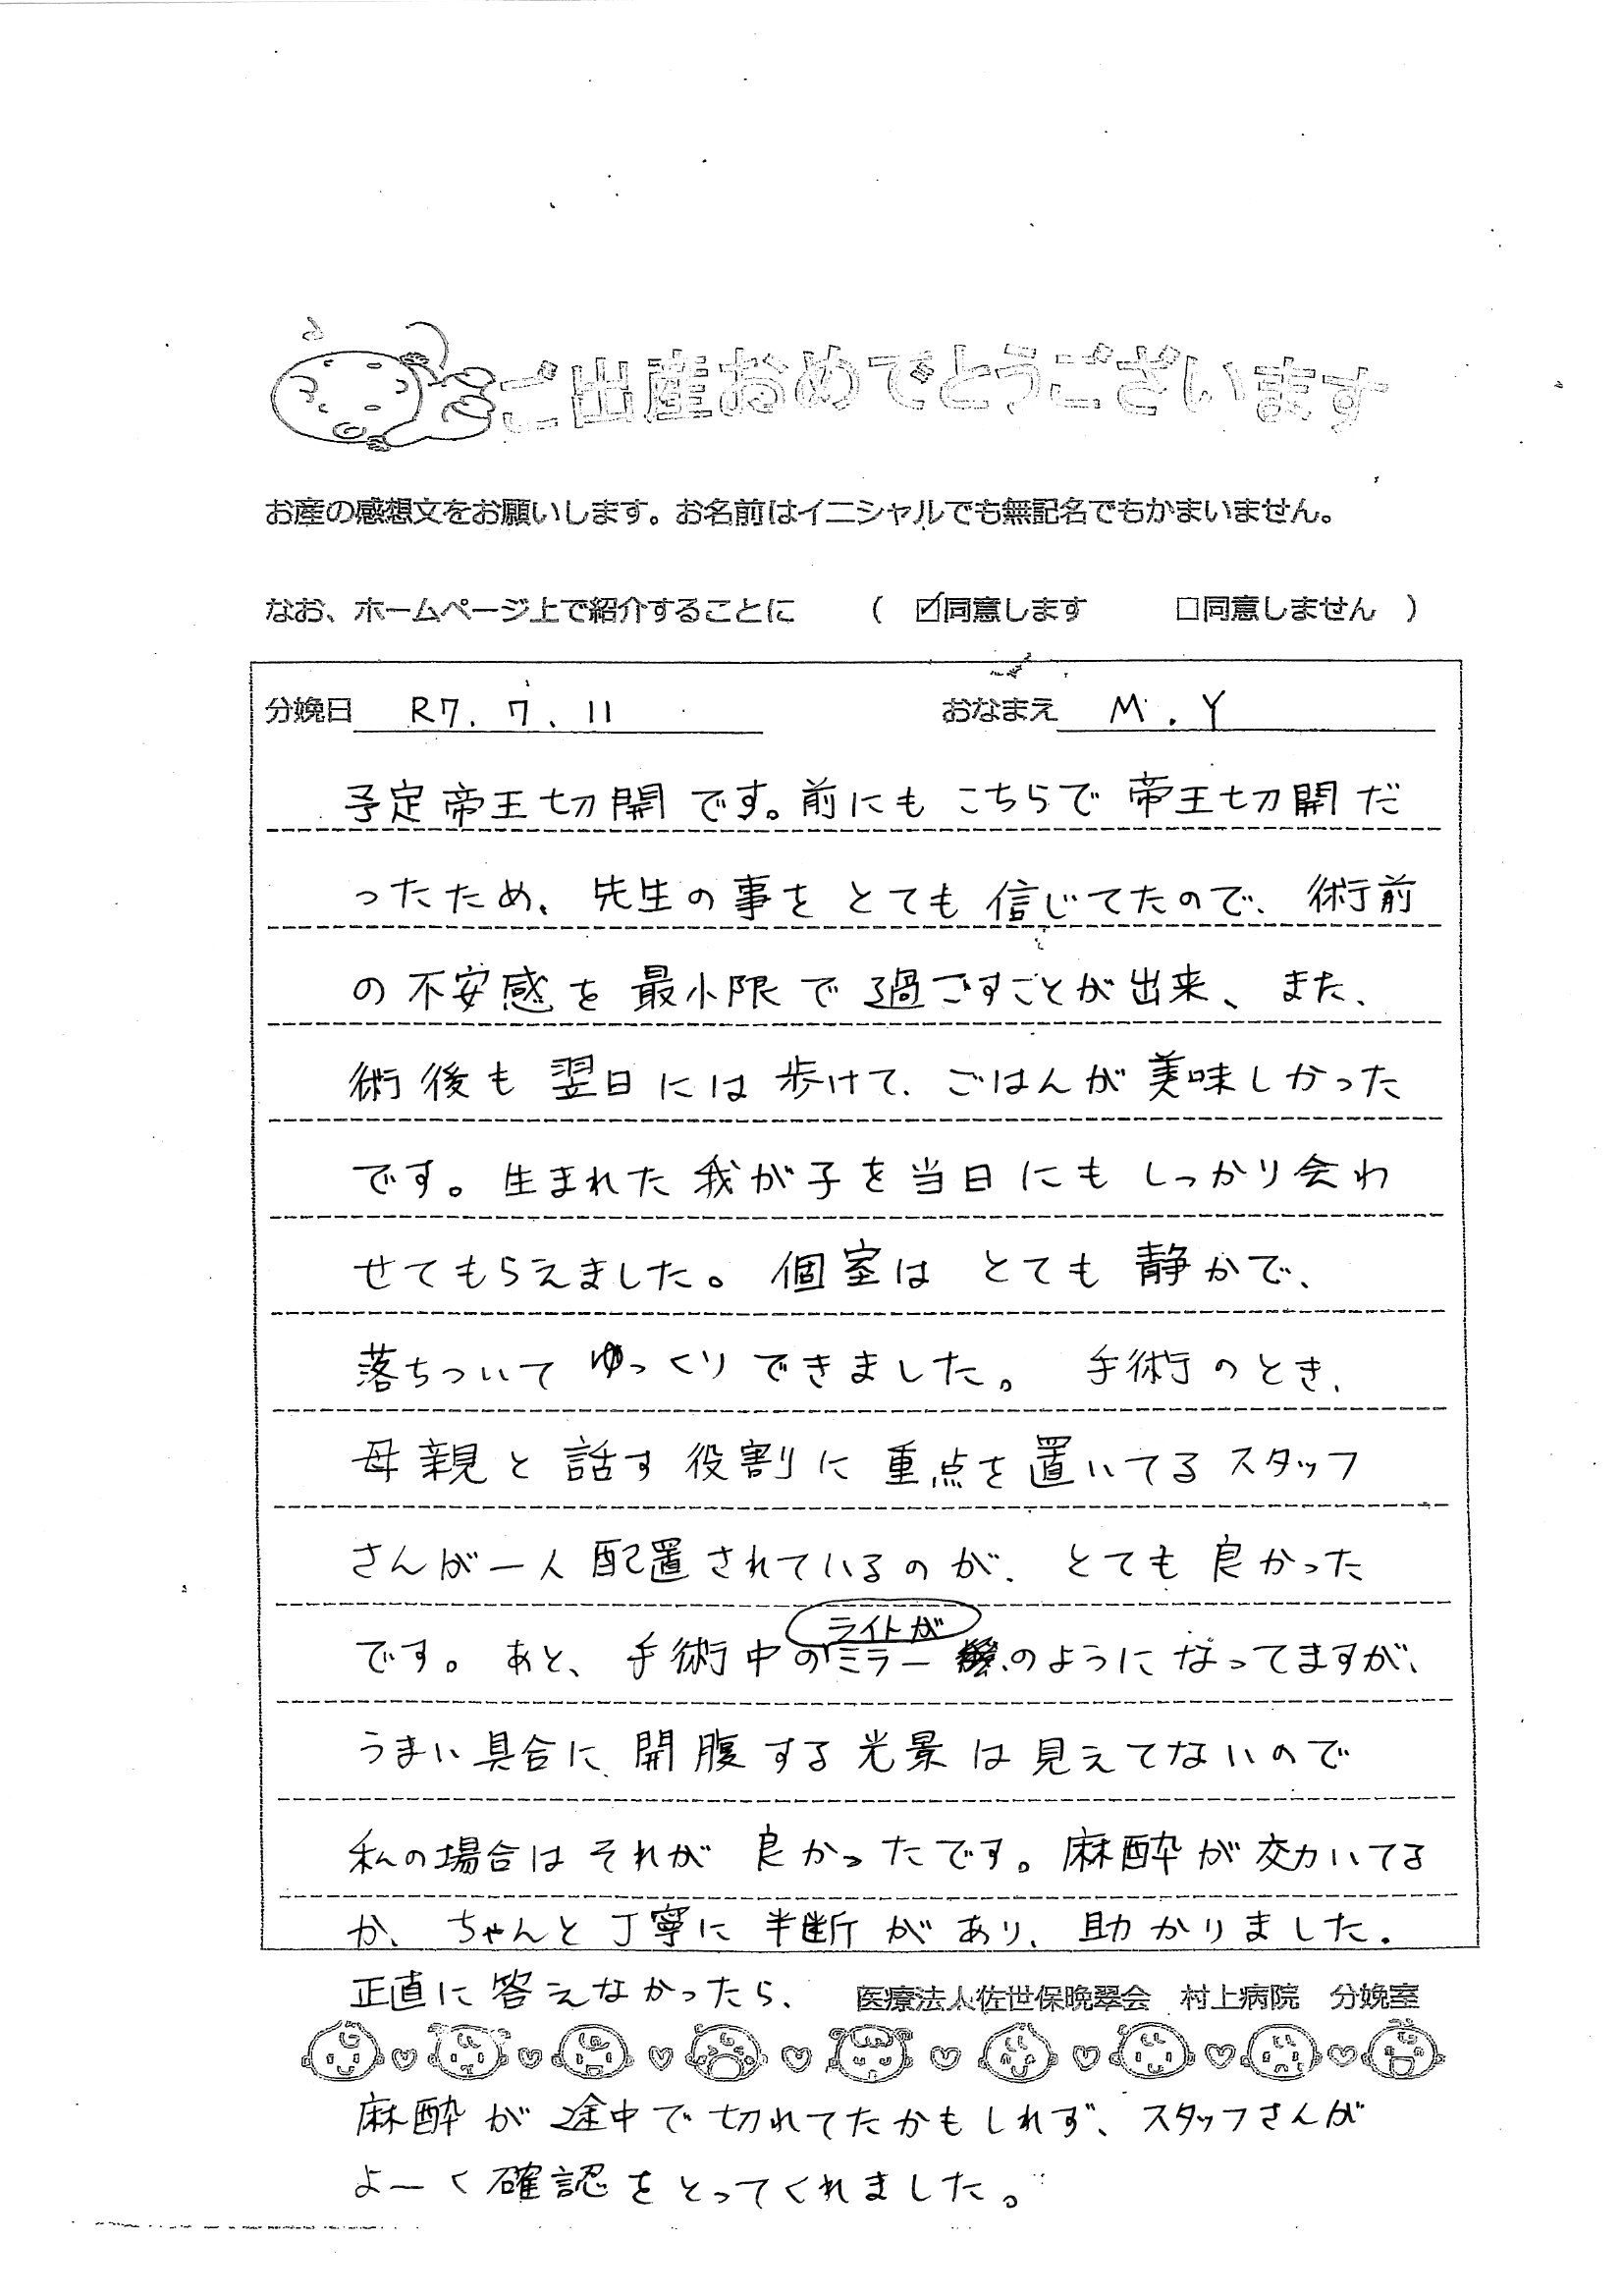 ご出産おめでとうございます
お産の感想文をお願いします。お名前はイニシャルでも無記名でもかまいません。
なお、ホームページ上で紹介することに ( ☑同意します □同意しません )
分娩日 R7.7.11 おなまえ M.Y
予定帝王切開です。前にもこちらで帝王切開だ
ったため、先生の事をとても信じてたので、術前
の不安感を最小限で過ごすことが出来、また、
術後も翌日には歩けて、ごはんが美味しかった
です。生まれた我が子を当日にもしっかり会わ
せてもらえました。個室はとても静かで、
落ちついてゆっくりできました。手術のとき、
母親と話す役割に重点を置いてるスタッフ
さんが一人配置されているのが、とても良かった
ライトが
です。あと、手術中のミラーのようになってますが、
うまい具合に開腹する光景は見えてないので
私の場合はそれが良かったです。麻酔が効いてる
か、ちゃんと丁寧に判断があり、助かりました。
正直に答えなかったら、 医療法人佐世保晩翠会 村上病院 分娩室
麻酔が途中で切れてたかもしれず、スタッフさんが
よーく確認をとってくれました。